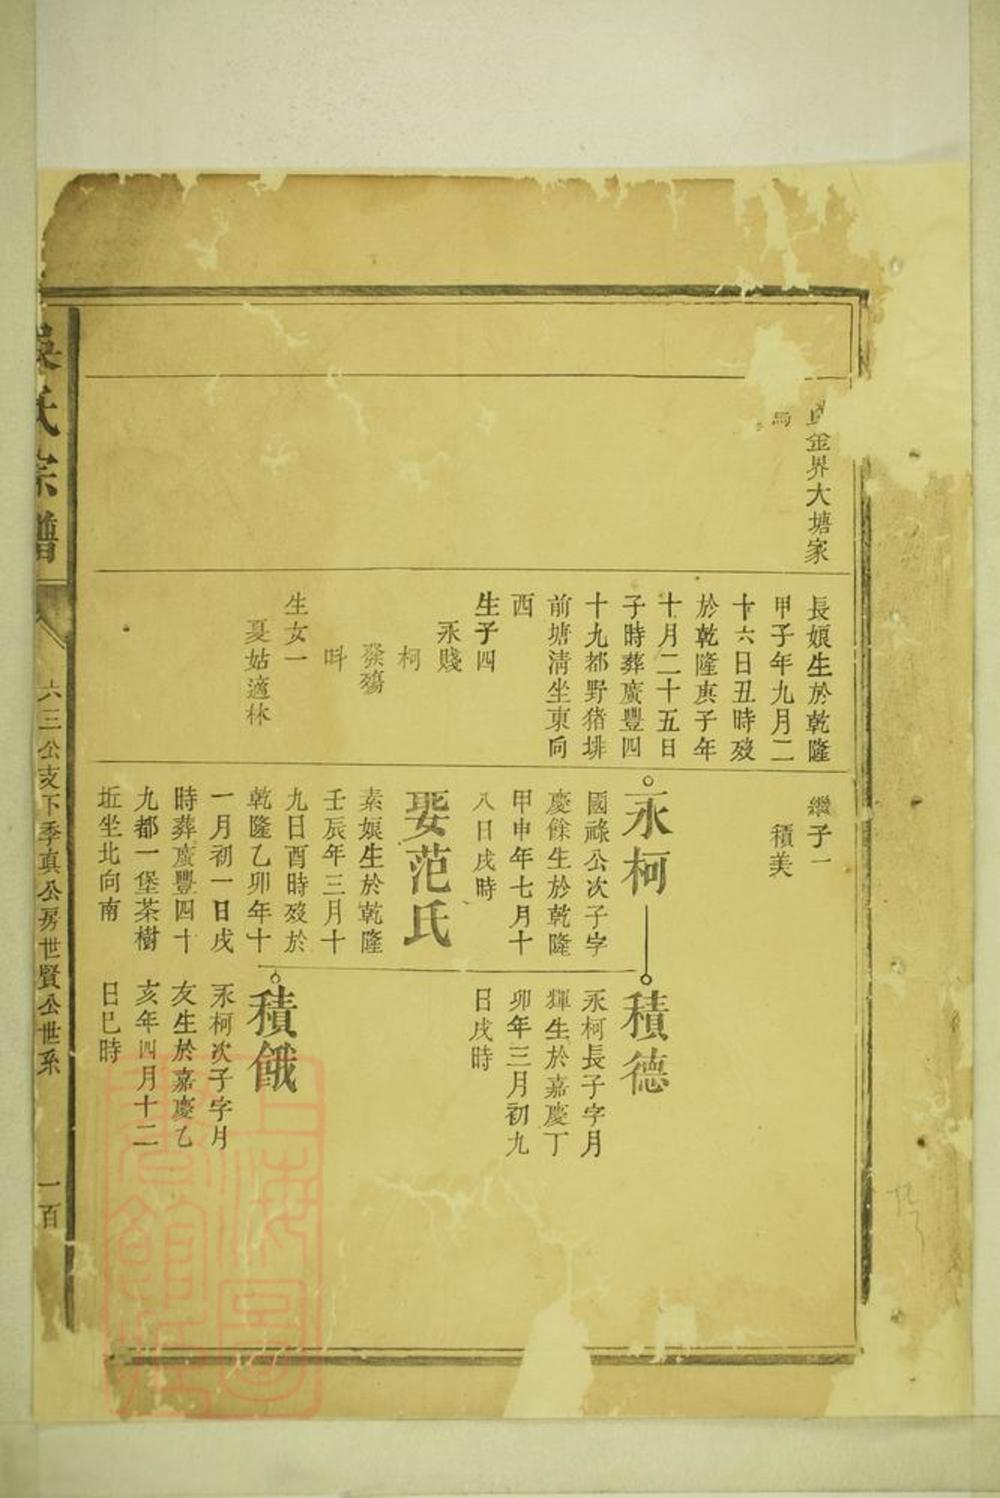 金界大塘家
長娘生於乾隆
甲子年九月二
十六日丑時歿
於乾隆庚子年
十月二十五日
子時葬廣豐四
十九都野猪排
前塘清坐東向
西
生子四
永賤
柯
發殤
呌
生女一
夏姑適林
繼子一
積美
永柯
國祿公次子字
慶餘生於乾隆
甲申年七月十
八日戌時
娶范氏
素娘生於乾隆
壬辰年三月十
九日酉時歿於
乾隆乙卯年十
一月初一日戌
時葬廣豐四十
九都一堡茶樹
坵坐北向南
積德
永柯長子字月
輝生於嘉慶丁
卯年三月初九
日戌時
積餓
永柯次子字月
友生於嘉慶乙
亥年四月十二
日巳時
吳氏宗譜
六三公支下季真公房世賢公世系
一百
上海圖書館藏